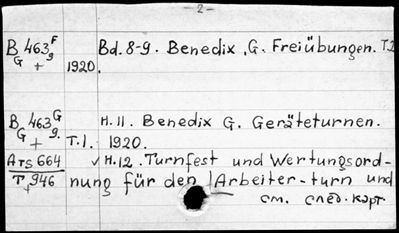 - 2 -
B 463 F Bd. 8-9. Benedix, G. Freiübungen. T.I
G + 9 1920.
B 463 G H. 11. Benedix G. Geräteturnen.
G + 9. T. 1. 1920.
Ars 664 ✓ H. 12. Turnfest und Wertungsord-
T, 946 nung für den Arbeiter-turn und
см. след. карт